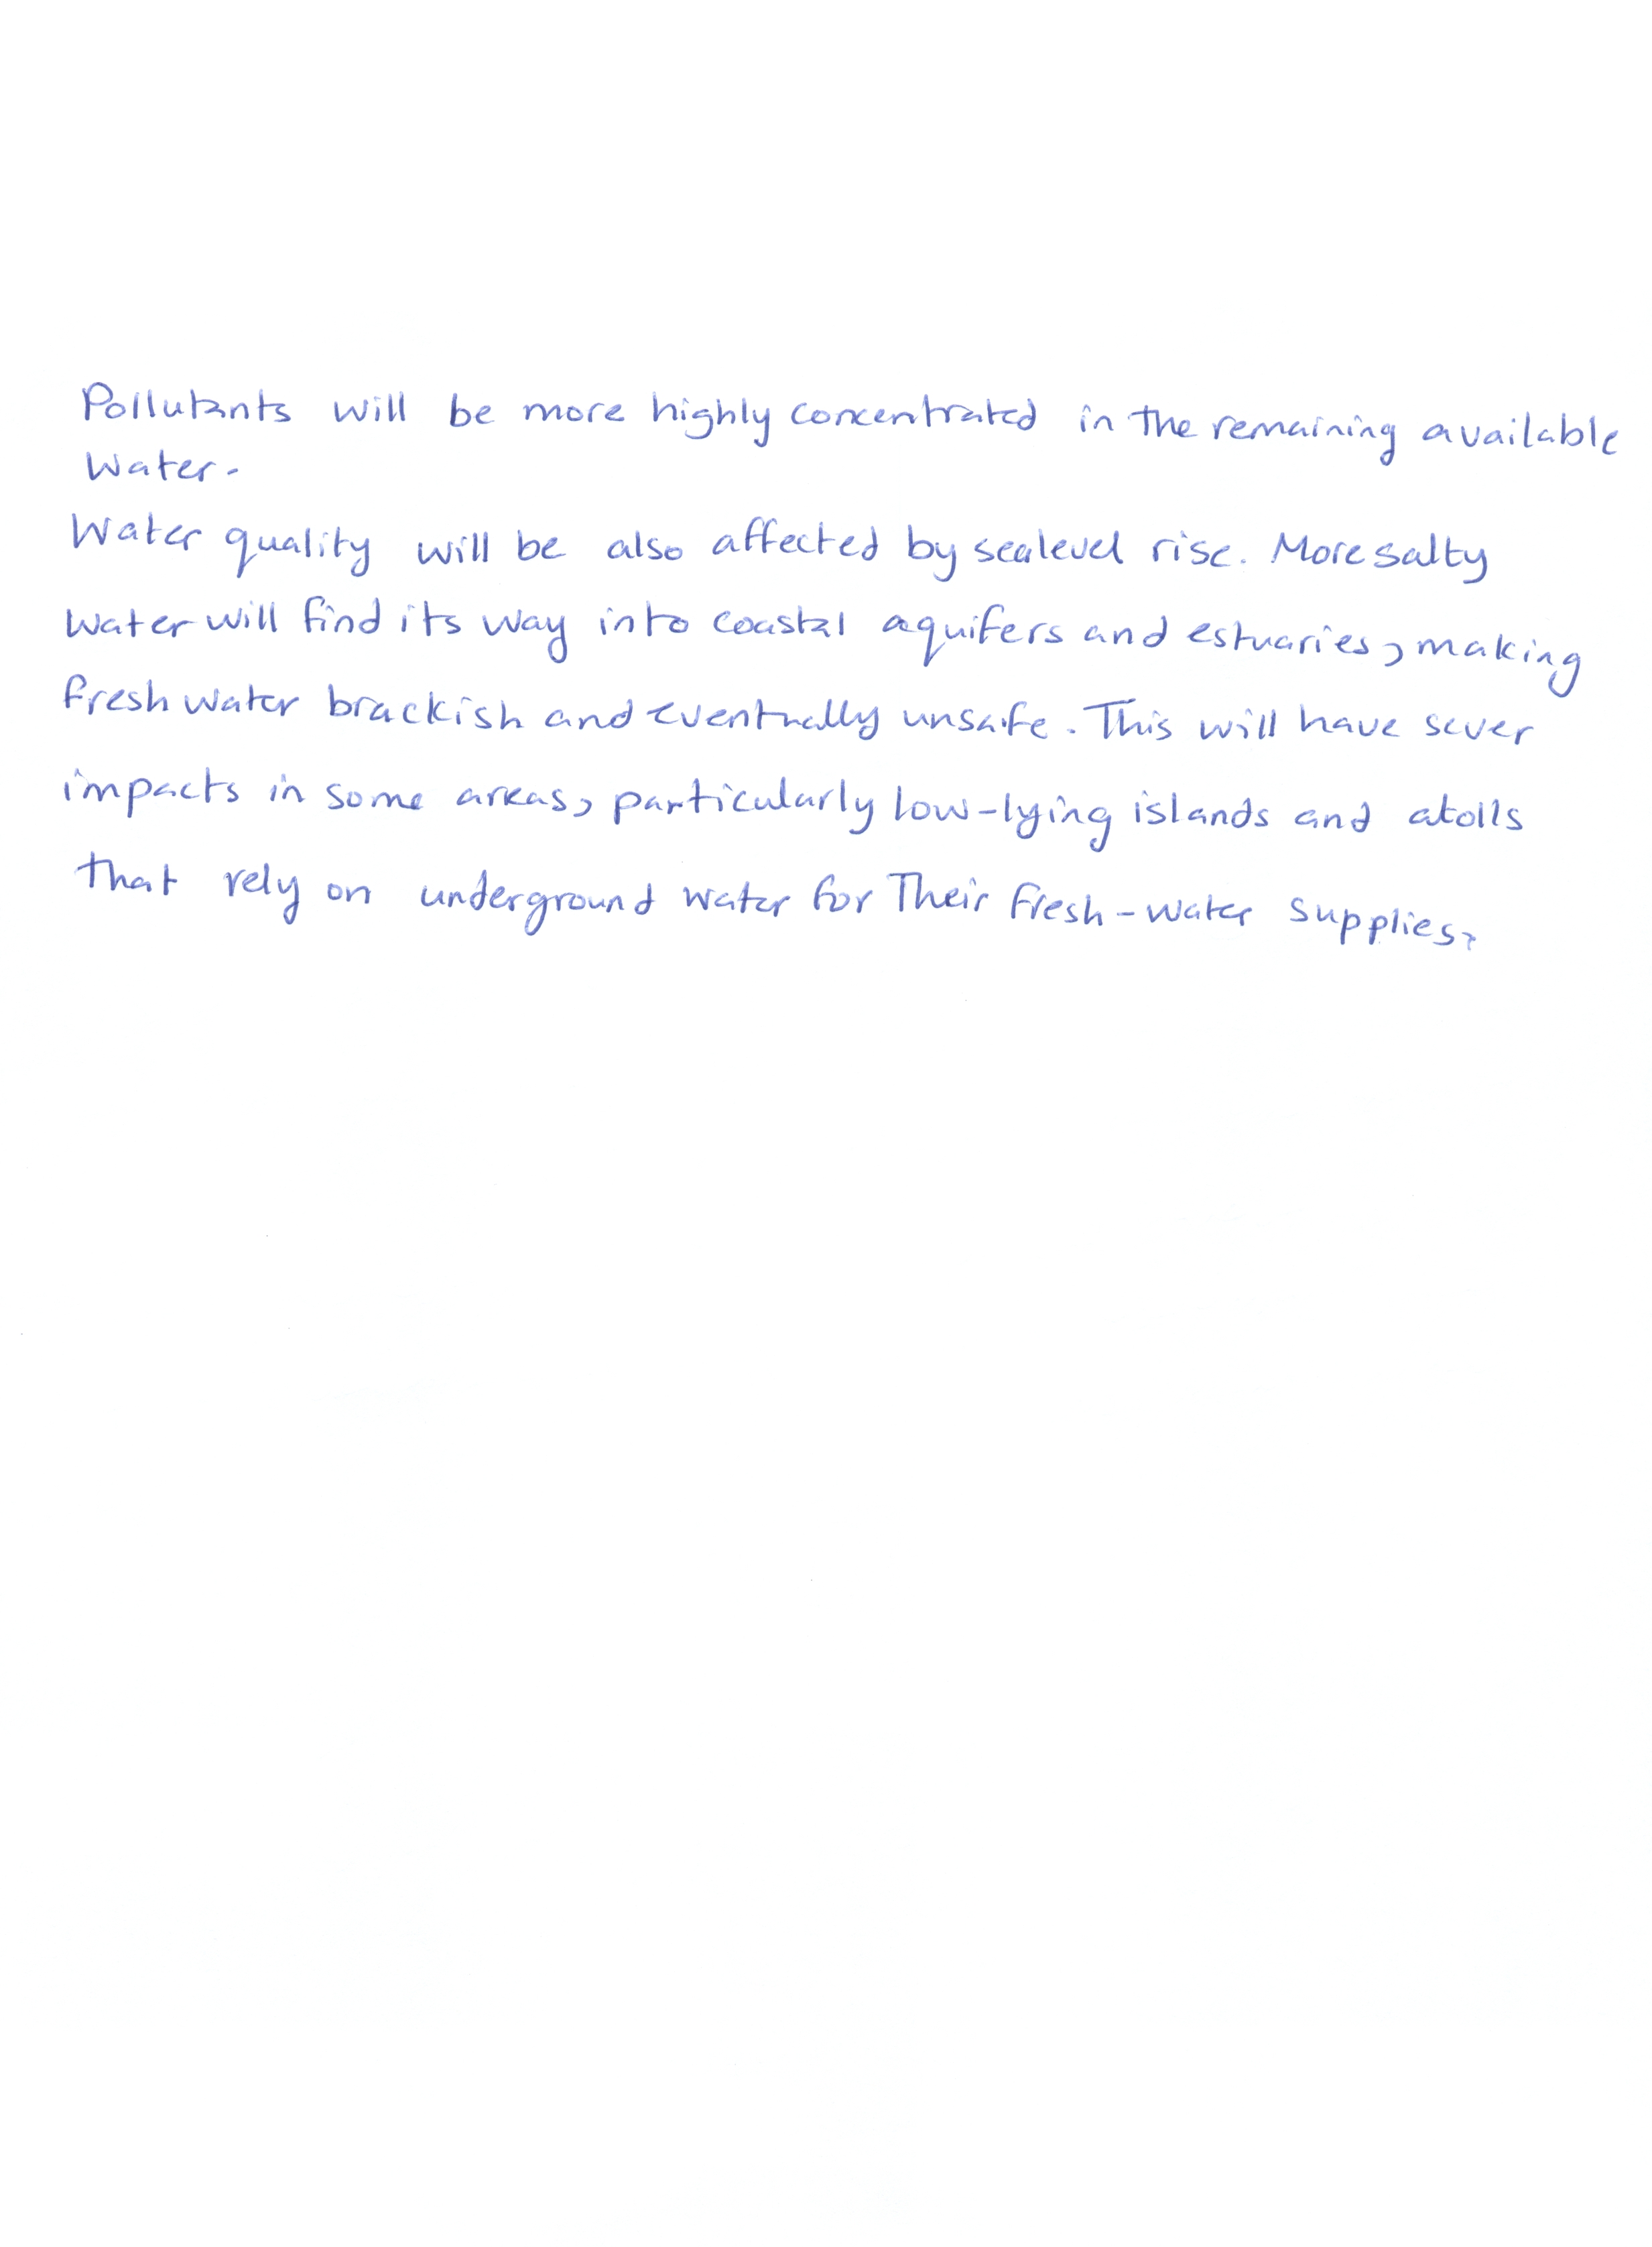 Pollutants will be more highly concentrated in the remaining available
Water.
Water quality will be also affected by sealevel rise. More salty
Water will find its way into coastal aquifers and estuaries, making
fresh water brackish and eventually unsafe. This will have sever
impacts in some areas, particularly low-lying islands and atolls
that rely on underground water for Their fresh-water supplies,